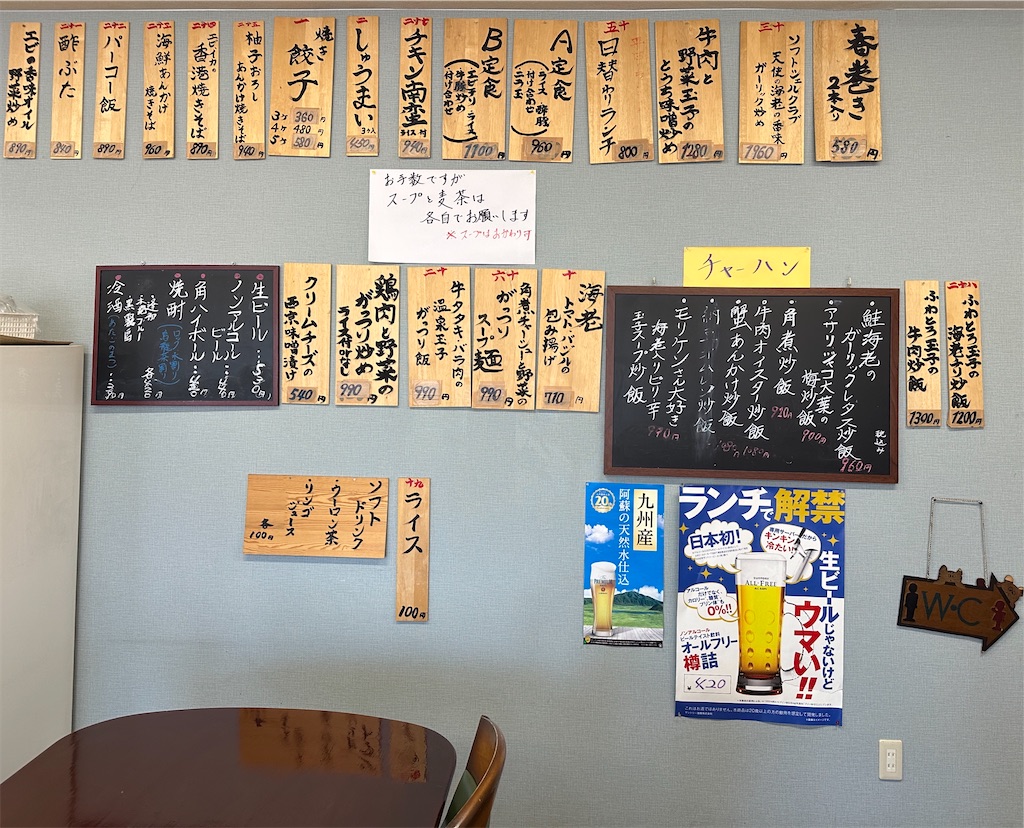 春巻き
2本入り
580円
三十
ソフトシェルクラブ
天使の海老の香味
ガーリック炒め
1960円
牛肉と
野菜玉子の
とうち味噌炒め
1280円
十五
日替りランチ
800円
A定食
(ライス 酢豚
付け合わせ
ニラ玉)
960円
B定食
(エビチリ ライス
牛豚炒め
付け合わせ)
1100円
二十七
チキン南蛮
ライス付
940円
二
しゅうまい
3ヶ入
450円
一
焼き
餃子
3ヶ 360円
4ヶ 480円
5ヶ 580円
二十五
柚子おろし
あんかけ焼きそば
940円
二十四
エビイカの
香港焼きそば
890円
二十三
海鮮あんかけ
焼きそば
960円
二十二
パーコー飯
890円
酢ぶた
890円
二十一
エビの香味オイル
野菜炒め
890円
お手数ですが
スープと麦茶は
各自でお願いします
※スープはおかわり可
チャーハン
二十八
ふわとろ玉子の
海老チリ炒飯
1200円
ふわとろ玉子の
牛肉炒飯
1300円
・鮭海老の
ガーリックレタス炒飯
960円
税込み
・アサリッマコ大葉の
梅炒飯
900円
・角煮炒飯
920円
・牛肉オイスター炒飯
1080円
・蟹あんかけ炒飯
1080円
炒飯
・モリケンさん大好き
海老入りピリ辛
玉子スープ炒飯
990円
十
海老
トマト・バジルの
包み揚げ
770円
十六
角煮チャーシュー野菜の
がっつり
スープ麺
990円
十二
牛タタキ・バラ肉の
温泉玉子
がっつり飯
990円
鶏肉と野菜の
がっつり炒め
ライス付
990円
クリームチーズの
西京味噌漬け
540円
・生ビール…530円
・ノンアルコール
ビール
・角ハイボール
・焼酎
(ロック・水割
烏龍茶割)
黒霧島
・冷酒
ソフト
ドリンク
ウーロン茶
リンゴ
ジュース
各
100円
十九
ライス
100円
九州産
阿蘇の天然水仕込
20
PREMIUM
ランチで解禁
日本初!
専用サーバーだから
キンキン
冷たい!!
生ビールじゃないけど
ウマい!!
SUNTORY
ALL-FREE
アルコール
だけでなく、
カロリー、糖質、
プリン体も
0%!!
ノンアルコール
ビールテイスト飲料
オールフリー
樽詰
420
これはお酒ではありません。
W・C